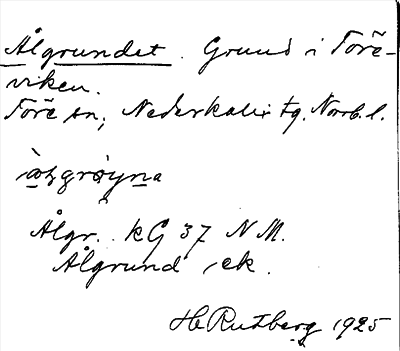 Ålgrundet. Grund i Töre-
viken.
Töre sn, Nederkalix tg. Norrb. l.
Ålgr. kG 37 N M.
Ålgrund, ek.
H. Rutberg 1925